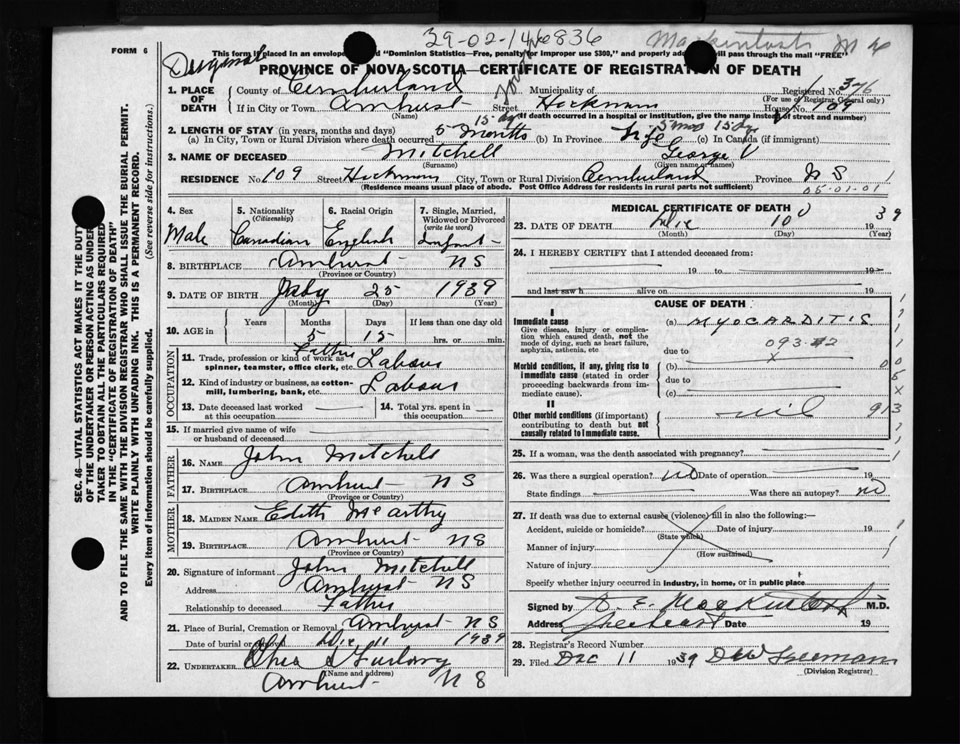 39-02-14 836
FORM 6
This form if placed in an envelope "Dominion Statistics—Free, penalty for improper use $300," and properly pass through the mail "FREE"
PROVINCE OF NOVA SCOTIA—CERTIFICATE OF REGISTRATION OF DEATH
1. PLACE OF DEATH
County of Cumberland
Municipality of
Registered No. 376
(For use of Registrar General only)
If in City or Town Amherst (Name)
Street Hickman House No. 109
(If death occurred in a hospital or institution, give the name instead of street and number)
2. LENGTH OF STAY (in years, months and days)
(a) In City, Town or Rural Division where death occurred 5 months 15 dys (b) In Province life 5 mos 15 dys (c) In Canada (if immigrant)
3. NAME OF DECEASED Mitchell (Surname) George V (Given name or names)
RESIDENCE No. 109 Street Hickman City, Town or Rural Division Cumberland Province N S
(Residence means usual place of abode. Post Office Address for residents in rural parts not sufficient)
05-01-01
4. Sex Male
5. Nationality (Citizenship) Canadian
6. Racial Origin English
7. Single, Married, Widowed or Divorced (write the word) Infant
8. BIRTHPLACE Amherst N S
(Province or Country)
9. DATE OF BIRTH 25 1939
(Month) (Day) (Year)
10. AGE in Years Months Days If less than one day old
5 15 hrs. or min.
OCCUPATION
11. Trade, profession or kind of work as spinner, teamster, office clerk, etc. Father Labour
12. Kind of industry or business, as cotton-mill, lumbering, bank, etc. Labour
13. Date deceased last worked at this occupation
14. Total yrs. spent in this occupation
15. If married give name of wife or husband of deceased
FATHER
16. Name John Mitchell
17. Birthplace Amherst N S
(Province or Country)
MOTHER
18. Maiden Name Edith McCarthy
19. Birthplace Amherst N S
(Province or Country)
20. Signature of informant John Mitchell
Address Amherst N S
Relationship to deceased Father
21. Place of Burial, Cremation or Removal Amherst N S
Date of burial or removal Dec 11 1939
22. UNDERTAKER Furlong
(Name and address)
Amherst N S
MEDICAL CERTIFICATE OF DEATH
23. DATE OF DEATH 10 1939
(Month) (Day) (Year)
24. I HEREBY CERTIFY that I attended deceased from:
19 to 19
and last saw h alive on 19
CAUSE OF DEATH
I
Immediate cause
Give disease, injury or complication which caused death, not the mode of dying, such as heart failure, asphyxia, asthenia, etc
(a) MYOCARDITIS
due to
Morbid conditions, if any, giving rise to immediate cause (stated in order proceeding backwards from immediate cause)
(b)
due to
(c)
II
Other morbid conditions (if important) contributing to death but not causally related to immediate cause.
nil
25. If a woman, was the death associated with pregnancy?
26. Was there a surgical operation? no Date of operation 19
State findings Was there an autopsy? no
27. If death was due to external causes (violence) fill in also the following:—
Accident, suicide or homicide? (State which) Date of injury 19
Manner of injury (How sustained)
Nature of injury
Specify whether injury occurred in industry, in home, or in public place
Signed by E. Mackintosh M.D.
Address Date 19
28. Registrar's Record Number
29. Filed Dec 11 1939
(Division Registrar)
SEC. 46—VITAL STATISTICS ACT MAKES IT THE DUTY OF THE UNDERTAKER OR PERSON ACTING AS UNDERTAKER TO OBTAIN ALL THE PARTICULARS REQUIRED IN THE "CERTIFICATE OF REGISTRATION OF DEATH" AND TO FILE THE SAME WITH THE DIVISION REGISTRAR WHO SHALL ISSUE THE BURIAL PERMIT.
WRITE PLAINLY WITH UNFADING INK. THIS IS A PERMANENT RECORD.
Every item of information should be carefully supplied. (See reverse side for instructions.)